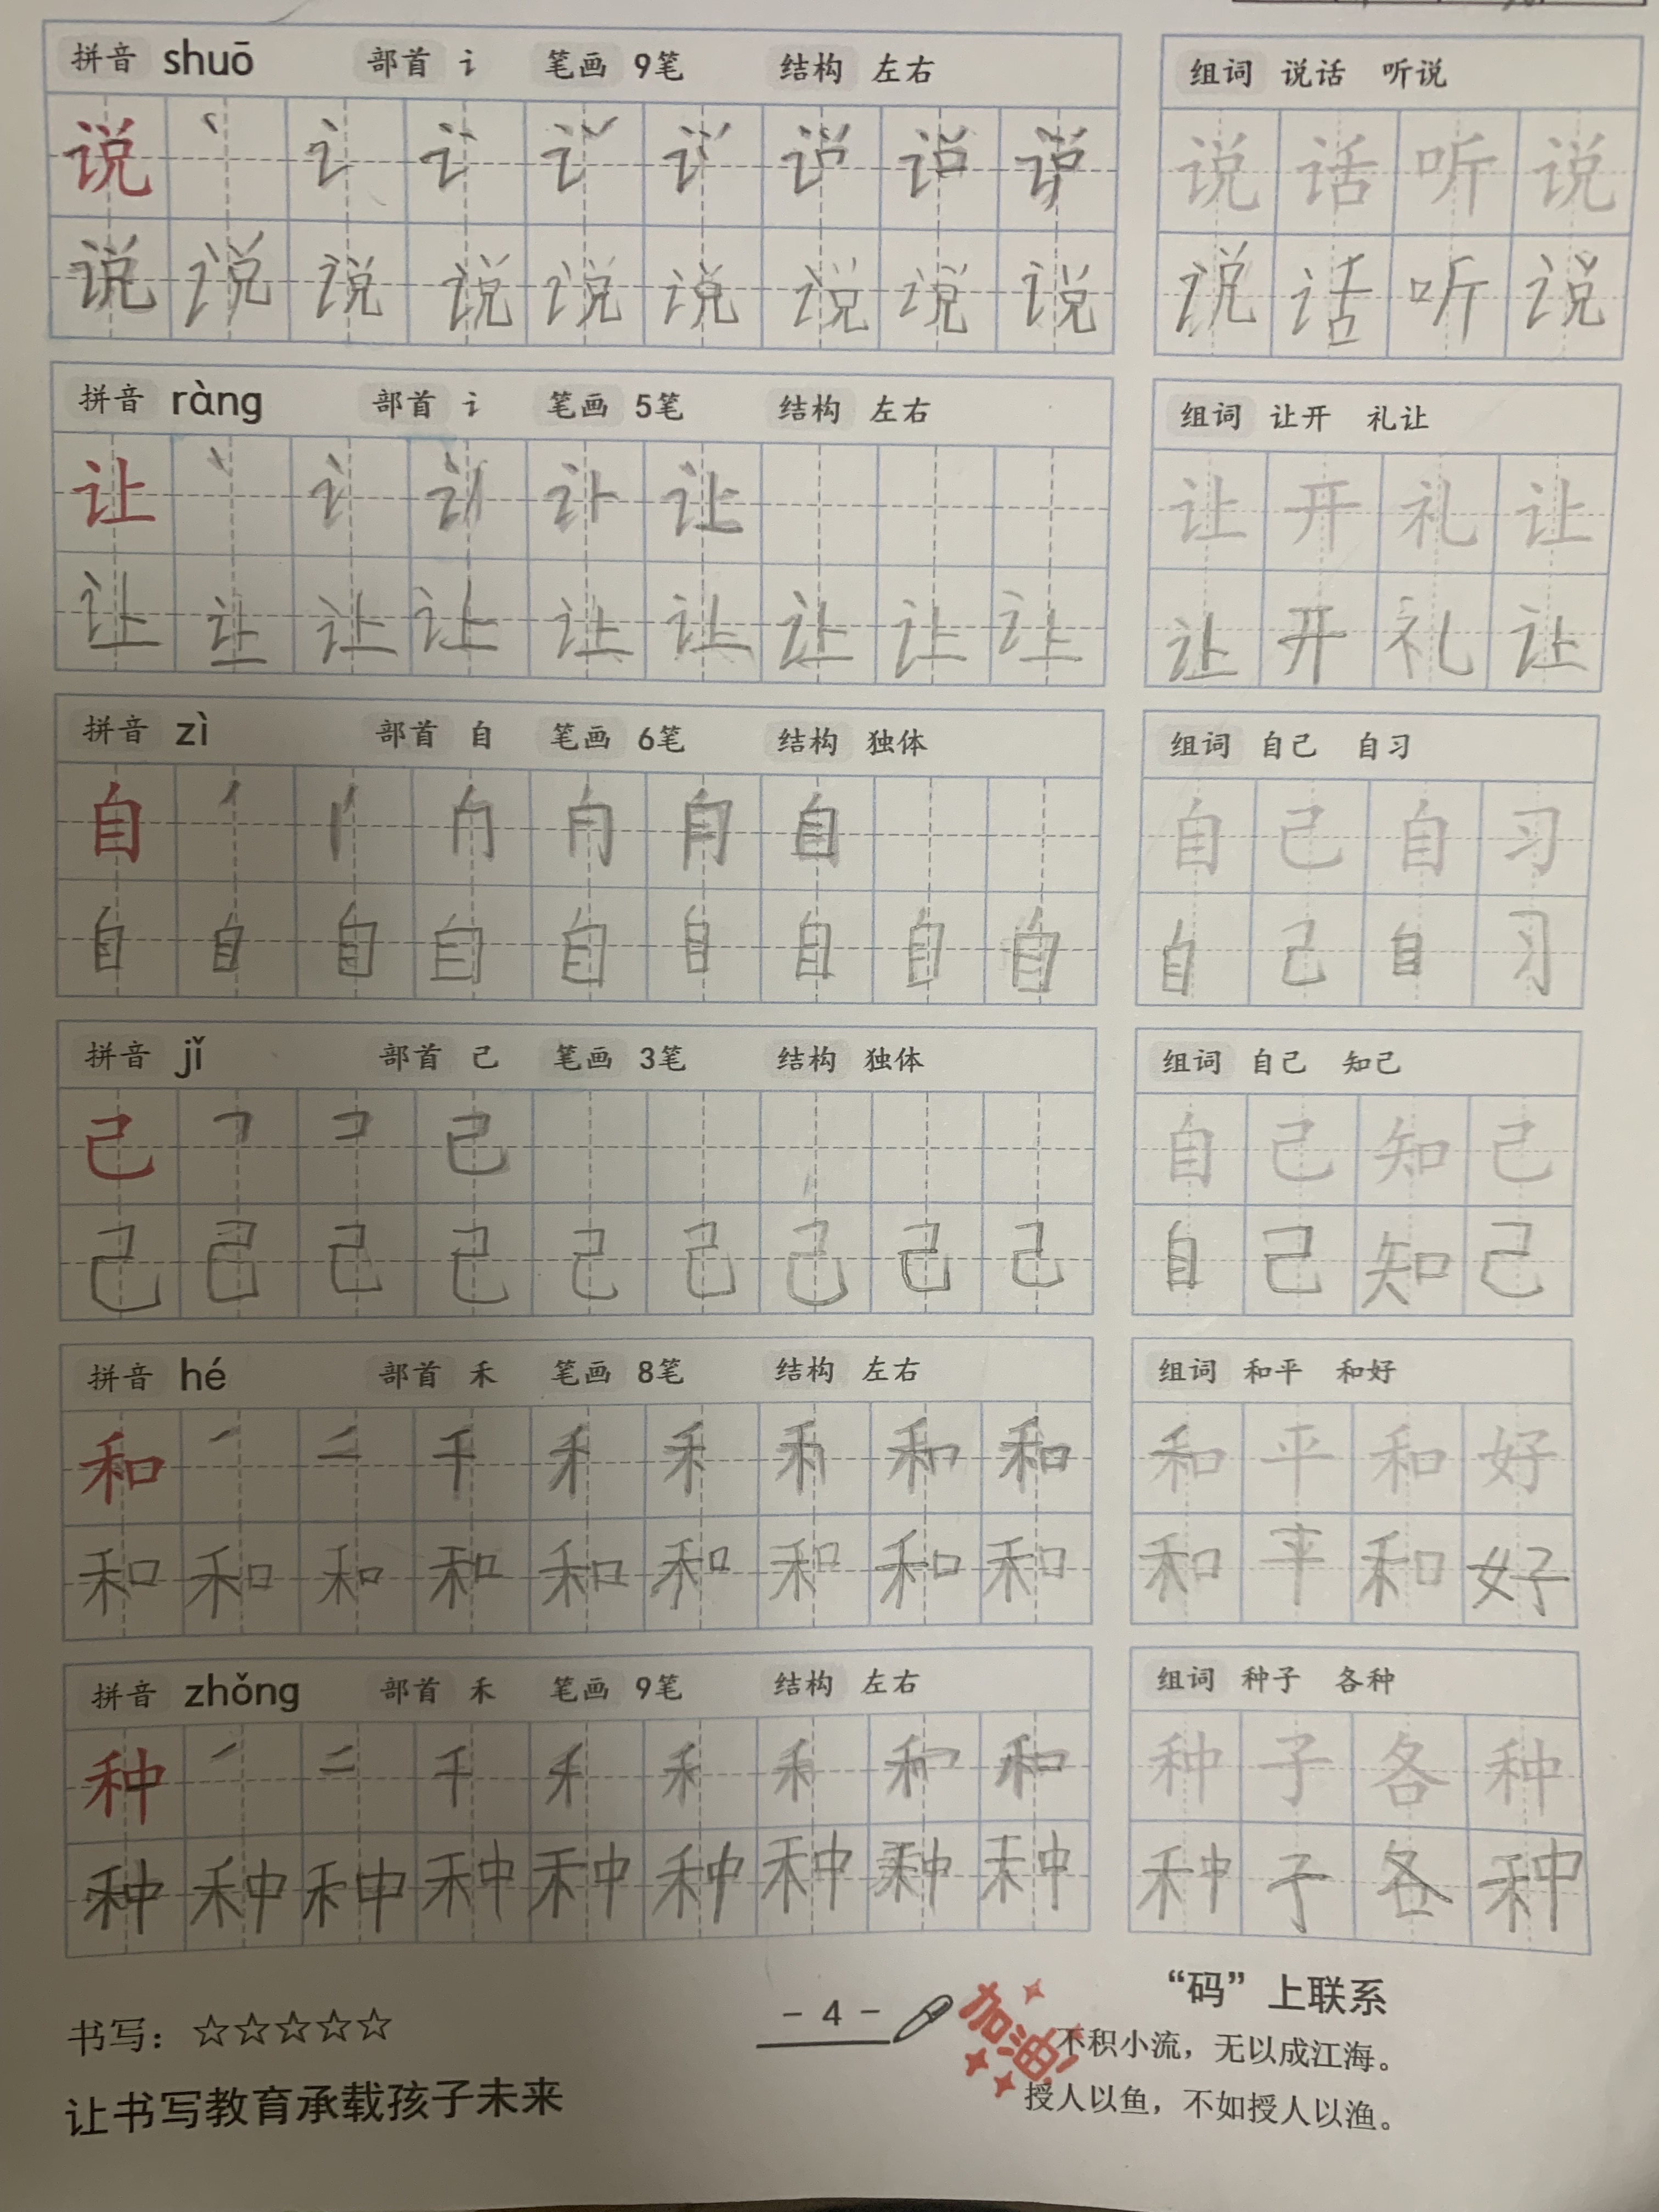 拼音 shuō 部首 讠 笔画 9笔 结构 左右 组词 说话 听说
说 丶 讠 说 话 听 说
说 说 说 说 说 说 说 说 说 说 话 听 说
拼音 ràng 部首 讠 笔画 5笔 结构 左右 组词 让开 礼让
让 丶 讠 让 让 开 礼 让
让 让 让 让 让 让 让 让 让 让 开 礼 让
拼音 zì 部首 自 笔画 6笔 结构 独体 组词 自己 自习
自 丿 自 自 己 自 习
自 自 自 自 自 自 自 自 自 自 己 自 习
拼音 jǐ 部首 己 笔画 3笔 结构 独体 组词 自己 知己
己 己 自 己 知 己
己 己 己 己 己 己 己 己 己 自 己 知 己
拼音 hé 部首 禾 笔画 8笔 结构 左右 组词 和平 和好
和 千 禾 和 和 平 和 好
和 和 和 和 和 和 和 和 和 和 平 和 好
拼音 zhǒng 部首 禾 笔画 9笔 结构 左右 组词 种子 各种
种 千 禾 和 种 子 各 种
种 种 种 种 种 种 种 种 种 种 子 各 种
书写：☆☆☆☆☆
让书写教育承载孩子未来
- 4 -
加油!
“码”上联系
不积小流，无以成江海。
授人以鱼，不如授人以渔。